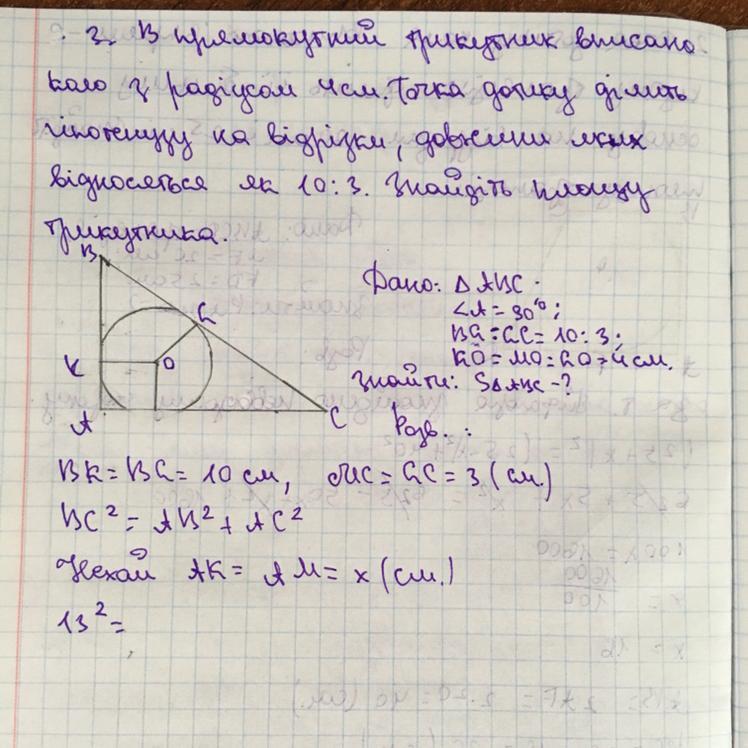 3. В прямокутний трикутник вписано
коло з радіусом 4 см. Точка дотику ділить
гіпотенузу на відрізки, довжини яких
відносяться як 10:3. Знайдіть площу
трикутника.
B
G
K
O
A
C
Дано: Δ ABC
∠A = 90°;
BG:GC = 10:3;
KO = MO = GO = 4 см.
Знайти: SΔABC - ?
Розв.:
BK = BG = 10 см, MC = GC = 3 (см.)
BC² = AB² + AC²
Нехай AK = AM = x (см.)
13² =